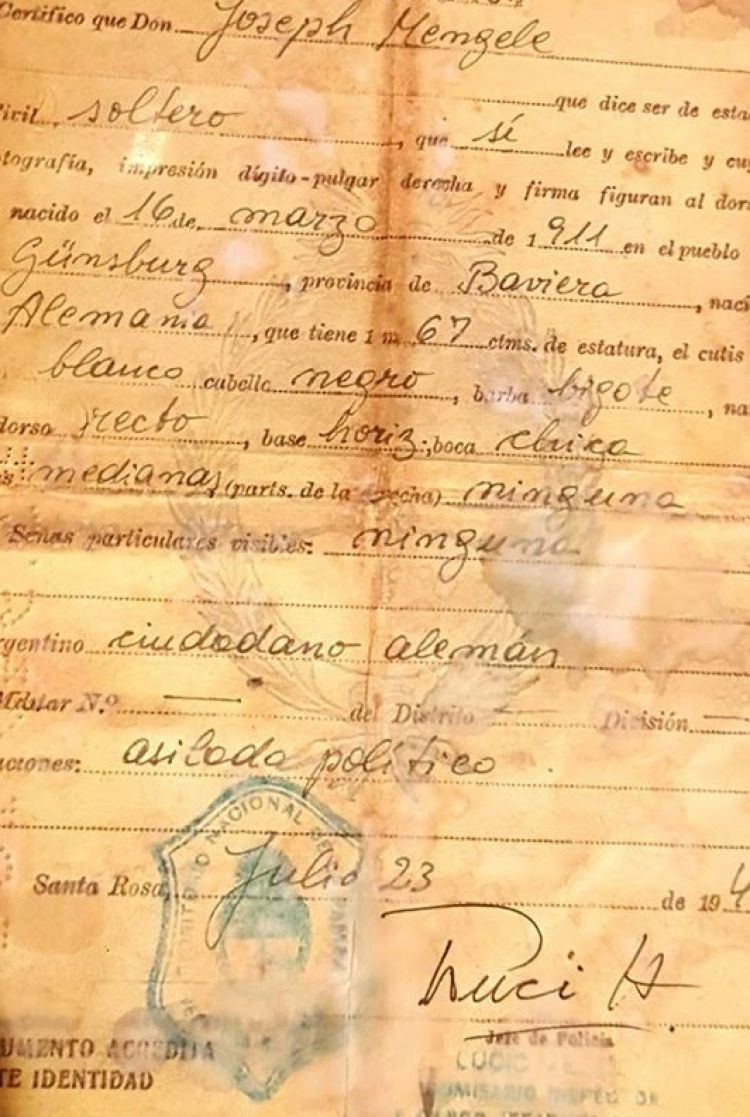 Certifico que Don Joseph Mengele
que dice ser de esta
soltero, que sí lee y escribe y cu
tografía, impresión dígito-pulgar derecha y firma figuran al dors
nacido el 16 de marzo de 1911 en el pueblo
Günsburg, provincia de Baviera, naci
Alemania, que tiene 1 m 67 ctms. de estatura, el cutis
blanco cabello negro, barba bigote, na
dorso recto, base horiz; boca chica
s medianas (parts. de la ninguna
Señas particulares visibles: ninguna
rgentino ciudadano alemán
Militar N.º — del Distrito — División —
aciones: asilado político
NACIONAL DE
Santa Rosa, Julio 23 de 194
Jefe de Policía
LUCIO
UMENTO ACREDITA
TE IDENTIDAD
COMISARIO INSPEC